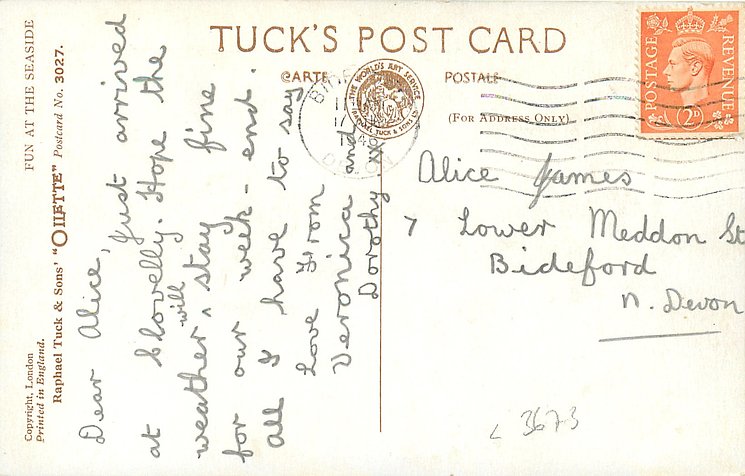 TUCK'S POST CARD
CARTE POSTALE
(FOR ADDRESS ONLY)
FUN AT THE SEASIDE
Raphael Tuck & Sons' "OILETTE" Postcard No. 3027.
Copyright, London
Printed in England.
THE WORLD'S ART SERVICE
RAPHAEL TUCK & SONS LTD
POSTAGE REVENUE
2D
DEVON
Dear Alice,
Just arrived
at Clovelly. Hope the
weather will stay fine
for our week-end.
All I have to say
Love From
Veronica and
Dorothy xx
Alice James
7 Lower Meddon St
Bideford
N. Devon
L 3673